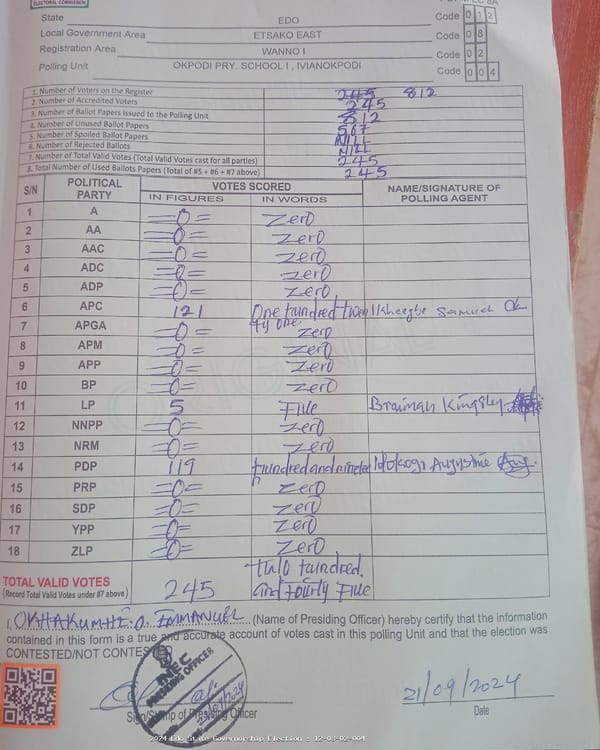 ELECTORAL COMMISSION
State EDO Code 0 1 2
Local Government Area ETSAKO EAST Code 0 8
Registration Area WANNO I Code 0 2
Polling Unit OKPODI PRY. SCHOOL I , IVIANOKPODI Code 0 0 4
1. Number of Voters on the Register 245 812
2. Number of Accredited Voters 245
3. Number of Ballot Papers Issued to the Polling Unit 812
4. Number of Unused Ballot Papers 567
5. Number of Spoiled Ballot Papers NILL
6. Number of Rejected Ballots NILL
7. Number of Total Valid Votes (Total Valid Votes cast for all parties) 245
8. Total Number of Used Ballots Papers (Total of #5 + #6 + #7 above) 245
S/N POLITICAL PARTY VOTES SCORED NAME/SIGNATURE OF POLLING AGENT
IN FIGURES IN WORDS
1 A =0= Zero
2 AA =0= Zero
3 AAC =0= Zero
4 ADC =0= Zero
5 ADP =0= Zero
6 APC 121 One hundred twen Samuel
ty one
7 APGA =0= Zero
8 APM =0= Zero
9 APP =0= Zero
10 BP =0= Zero
11 LP 5 Five Braimah Kingsley
12 NNPP =0= Zero
13 NRM =0= Zero
14 PDP 119 hundred and Augustine
15 PRP =0= Zero
16 SDP =0= Zero
17 YPP =0= Zero
18 ZLP =0= Zero
TOTAL VALID VOTES 245 Two hundred
(Record Total Valid Votes under #7 above) and fourty Five
I, OKHAKUMHE . O . EMMANUEL (Name of Presiding Officer) hereby certify that the information
contained in this form is a true and accurate account of votes cast in this polling Unit and that the election was
CONTESTED/NOT CONTESTED
INEC
PRESIDING OFFICER
21/09/2024
Sign/Stamp of Presiding Officer Date
2024 Edo State Governorship Election : 12-08-02-004